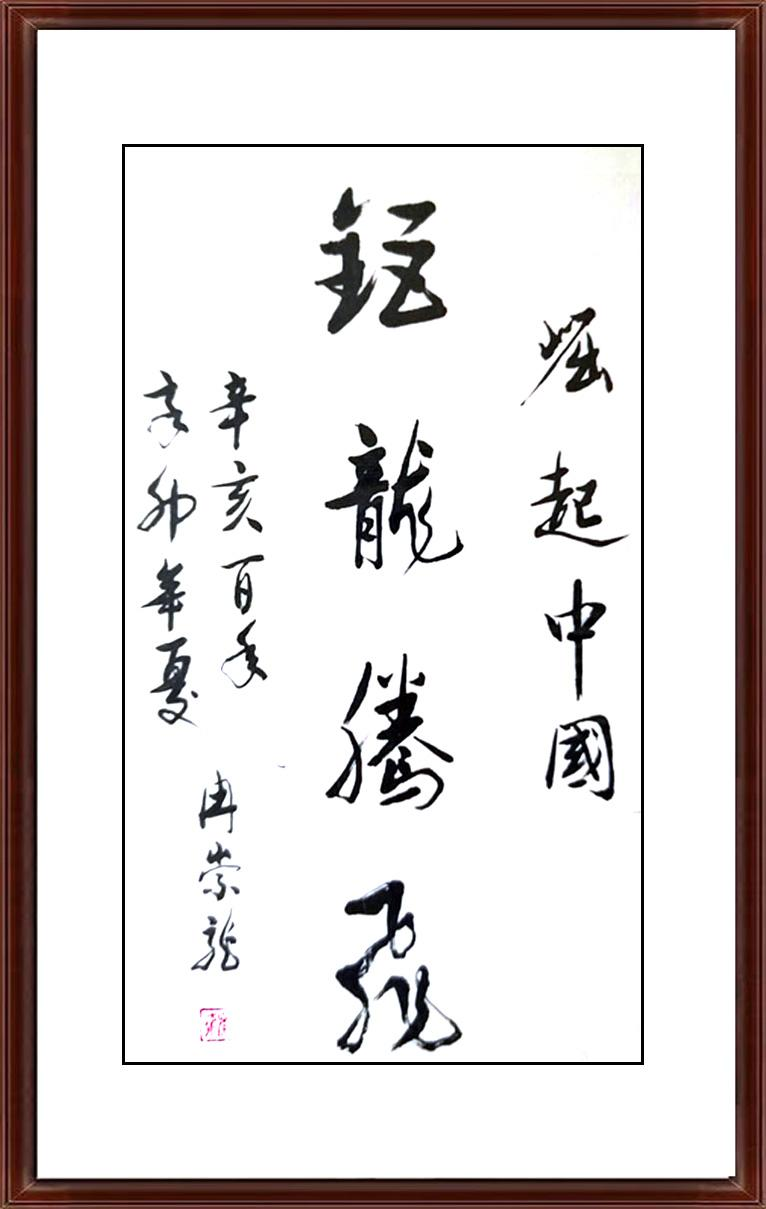 崛起中國
鉅龍騰飛
辛亥百年
辛卯年夏
冉崇龍